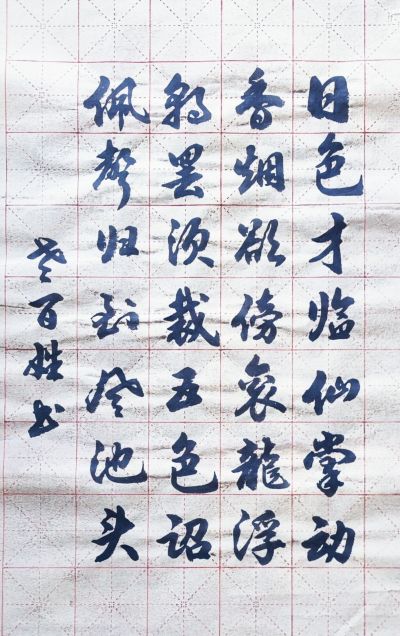 日色才临仙掌动
香烟欲傍衮龍浮
朝罢须裁五色诏
佩聲归到凤池头
老百姓书